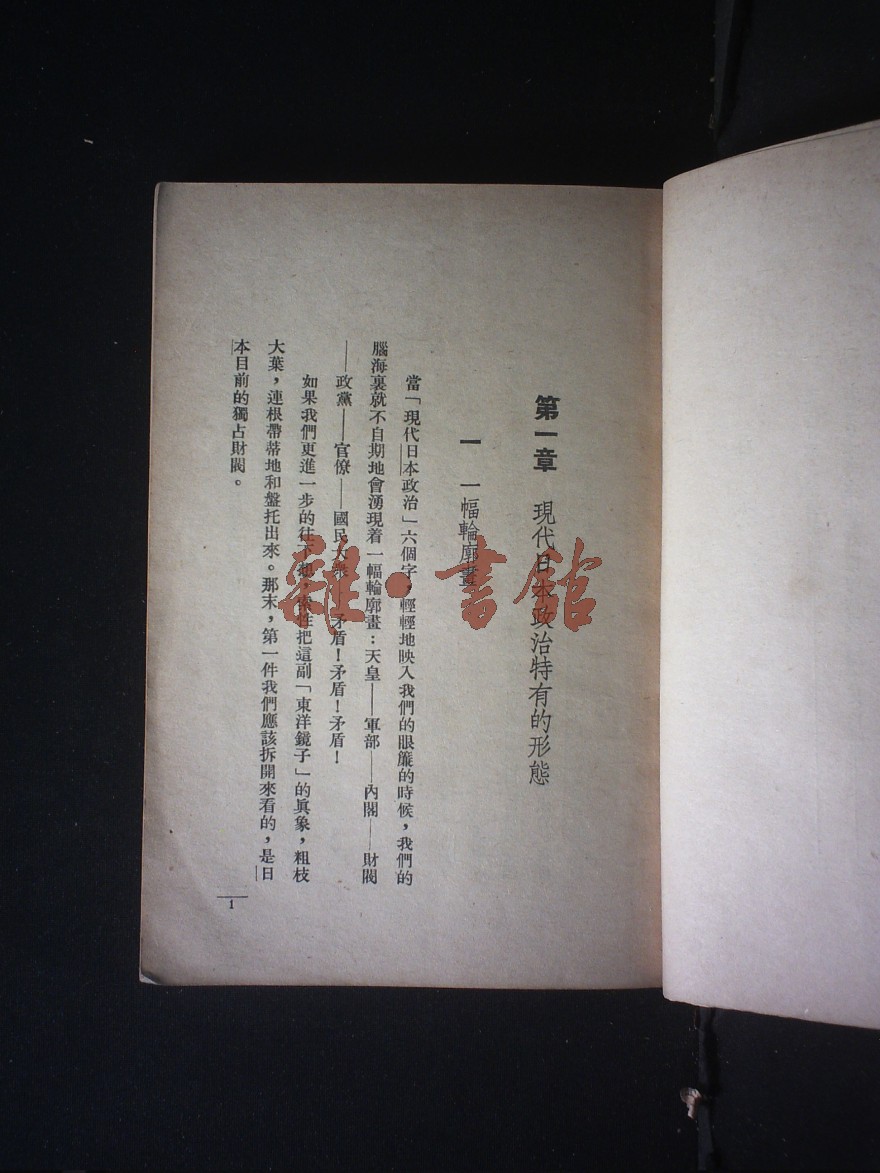 第一章　現代日本政治特有的形態
一　一幅輪廓畫
當「現代日本政治」六個字，輕輕地映入我們的眼簾的時候，我們的
腦海裏就不自期地會湧現着一幅輪廓畫：天皇——軍部——內閣——財閥
——政黨——官僚——國民大衆——矛盾！矛盾！矛盾！
如果我們更進一步的往下想，索性把這副「東洋鏡子」的眞象，粗枝
大葉，連根帶蒂地和盤托出來。那末，第一件我們應該拆開來看的，是日
本目前的獨占財閥。
1
雜·書館